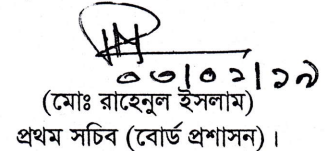 ০৩/০২/১৯
(মোঃ রাহেনুল ইসলাম)
প্রথম সচিব (বোর্ড প্রশাসন)।